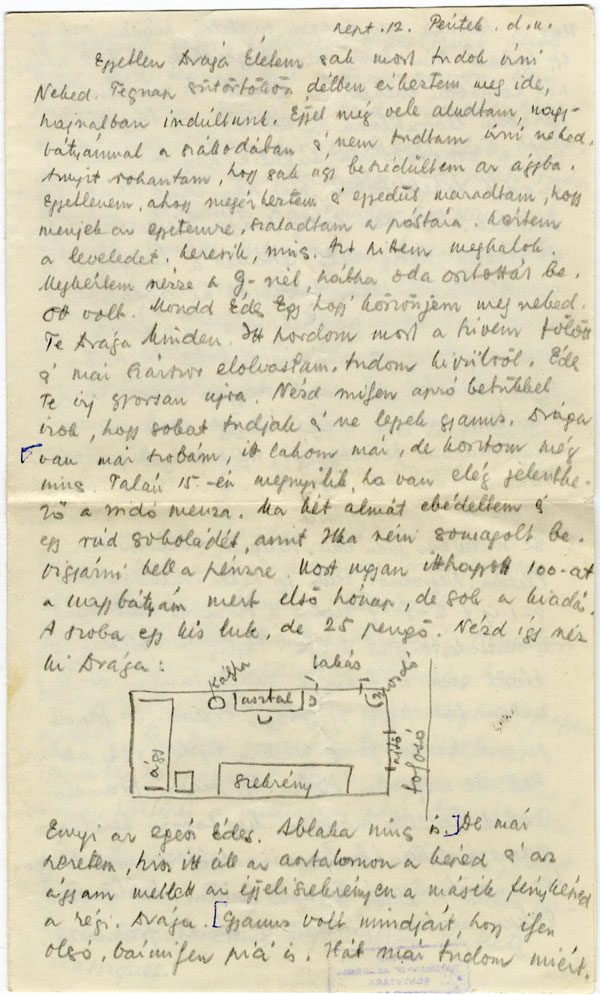 sept. 12. Péntek. d.u.
Egyetlen Drága Életem csak most tudok írni
Neked. Tegnap csütörtökön délben érkeztem meg ide,
hajnalban indultunk. Éjjel még vele aludtam, nagy-
bátyámmal a szállodában s nem tudtam írni neked.
Annyit rohantam, hogy csak úgy beszédültem az ágyba.
Egyetlenem, ahogy megérkeztem s egyedül maradtam, hogy
menjek az egyetemre, szaladtam a póstára. Kértem
a leveledet. keresik, nincs. Azt hittem meghalok.
Megkértem nézze a G-nél, hátha oda osztották be.
Ott volt. Mondd Édes Egy hogy köszönjem meg neked.
Te Drága Minden. Itt hordom most a szívem fölött
s már elolvastam. tudom kívülről. Édes
Te írj gyorsan újra. Nézd milyen apró betűkkel
írok, hogy sokat tudjak s ne legyek gyanus. Drága
van már szobám, itt lakom már, de kosztom még
nincs. Talán 15.-én megnyílik, ha van elég jelentke-
ző a zsidó menza. Ma két almát ebédeltem s
egy rúd csokoládét, amit Ilka néni csomagolt be.
Vigyázni kell a pénzre. Most ugyan itthagyott 100-at
a nagybátyám mert első hónap, de sok a kiadás.
A szoba egy kis luk, de 25 pengő. Nézd így néz
ki Drága:
kályha
asztal
mosdó
ágy
szekrény
ajtó
folyosó
Ennyi az egész Édes. Ablaka nincs is. De már
szeretem, hisz itt áll az asztalomon a képed s az
ágyam mellett az éjjeliszekrényen a másik fényképed
a régi. Drága. Gyanus volt mindjárt, hogy ilyen
olcsó, bármilyen pici is. Hát már tudom miért.